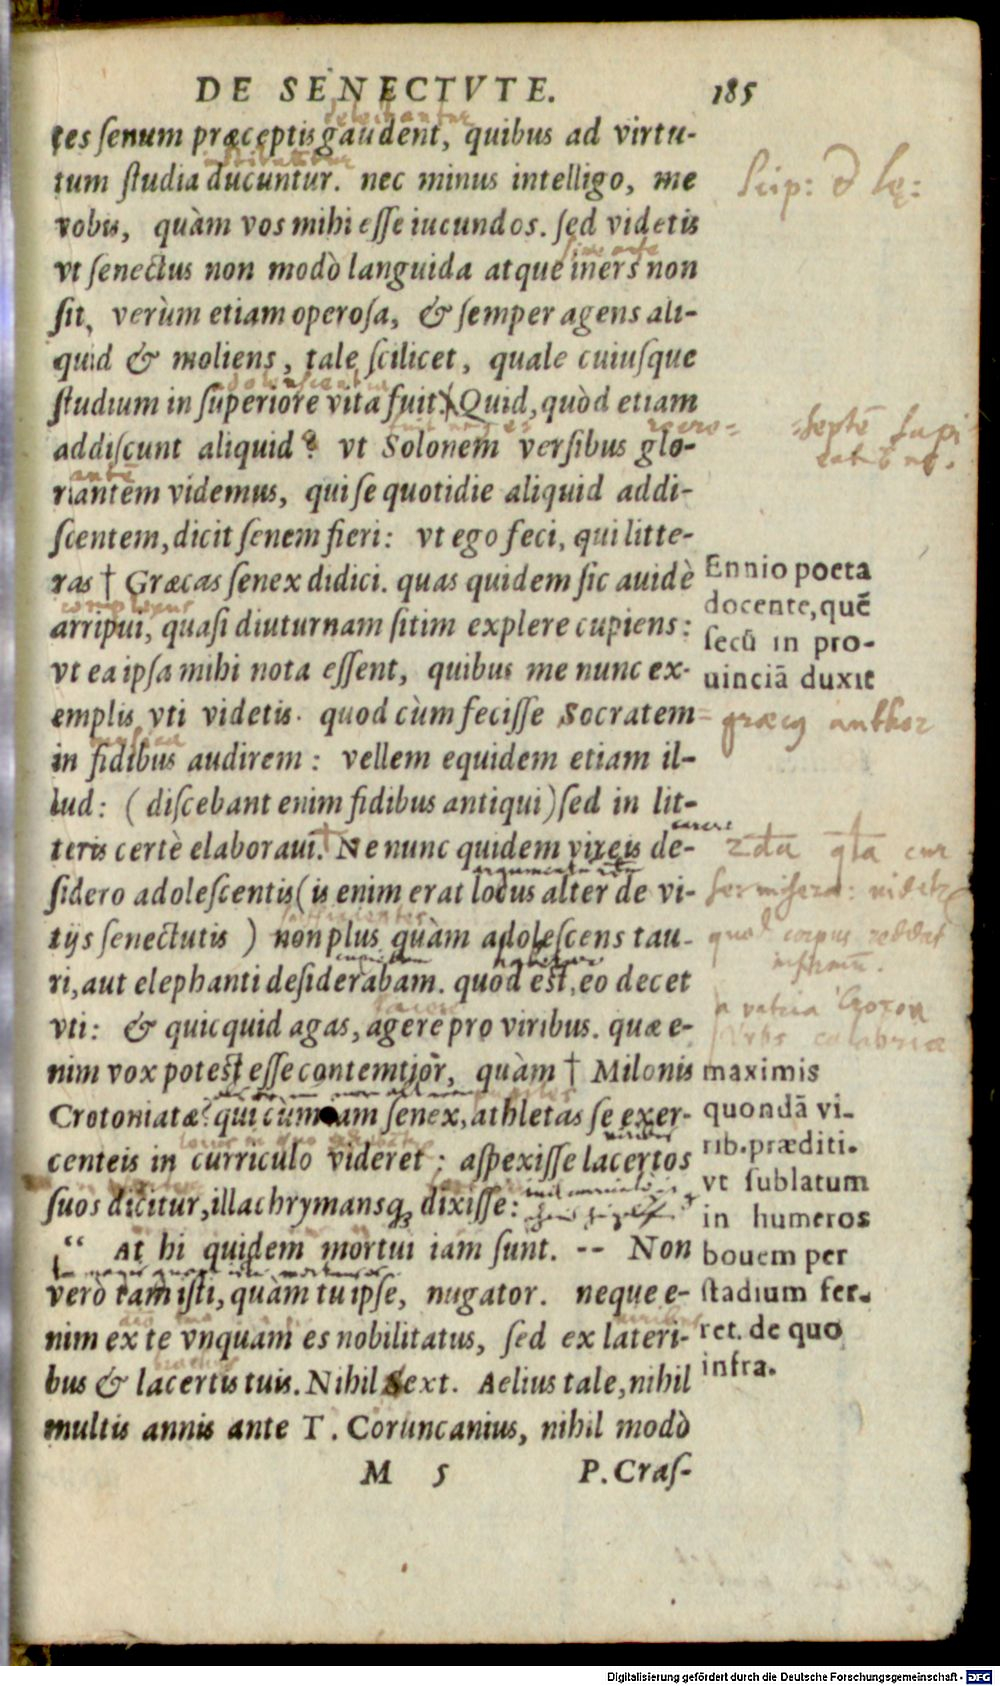 DE SENECTVTE. 185
tes senum præceptis gaudent, quibus ad virtu-
tum studia ducuntur. nec minus intelligo, me
vobis, quàm vos mihi esse iucundos. sed videtis
vt senectus non modò languida atque iners non
sit, verùm etiam operosa, & semper agens ali-
quid & moliens, tale scilicet, quale cuiusque
studium in superiore vita fuit. Quid, quòd etiam
addiscunt aliquid? vt Solonem versibus glo-
riantem videmus, qui se quotidie aliquid addi-
scentem, dicit senem fieri: vt ego feci, qui litte-
ras † Græcas senex didici. quas quidem sic auidè
arripui, quasi diuturnam sitim explere cupiens:
vt ea ipsa mihi nota essent, quibus me nunc ex-
emplis vti videtis. quod cùm fecisse Socratem
in fidibus audirem: vellem equidem etiam il-
lud: (discebant enim fidibus antiqui) sed in lit-
teris certè elaboraui. Ne nunc quidem vireis de-
sidero adolescentis (is enim erat locus alter de vi-
tijs senectutis) non plus quàm adolescens tau-
ri, aut elephanti desiderabam. quod est, eo decet
vti: & quicquid agas, agere pro viribus. quæ e-
nim vox potest esse contemtior, quàm † Milonis
Crotoniatæ? qui cum iam senex, athletas se exer-
centeis in curriculo videret: aspexisse lacertos
suos dicitur, illachrymansq́; dixisse:
“ At hi quidem mortui iam sunt. -- Non
verò tam isti, quàm tu ipse, nugator. neque e-
nim ex te vnquam es nobilitatus, sed ex lateri-
bus & lacertis tuis. Nihil Sext. Aelius tale, nihil
multis annis ante T. Coruncanius, nihil modò
M 5 P. Cras-
Scip: & Lę:
Ennio poeta
docente, quē
secū in pro-
uinciā duxit
græcus author
maximis
quondā vi-
rib. præditi.
vt sublatum
in humeros
bouem per
stadium fer-
ret. de quo
infra.
Digitalisierung gefördert durch die Deutsche Forschungsgemeinschaft - DFG